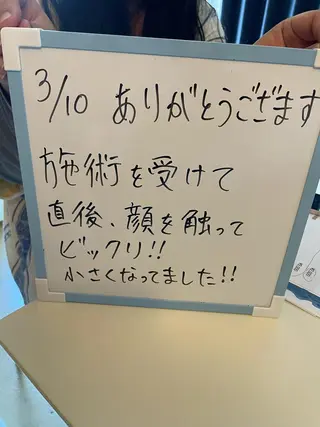 3/10 ありがとうございます
施術を受けて
直後、顔を触って
ビックリ!!
小さくなってました!!